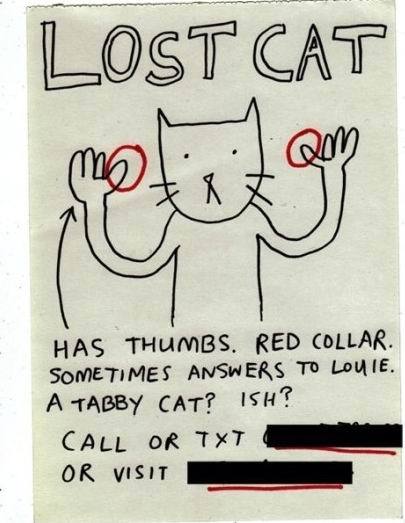 LOST CAT
HAS THUMBS. RED COLLAR.
SOMETIMES ANSWERS TO LOUIE.
A TABBY CAT? ISH?
CALL OR TXT
OR VISIT